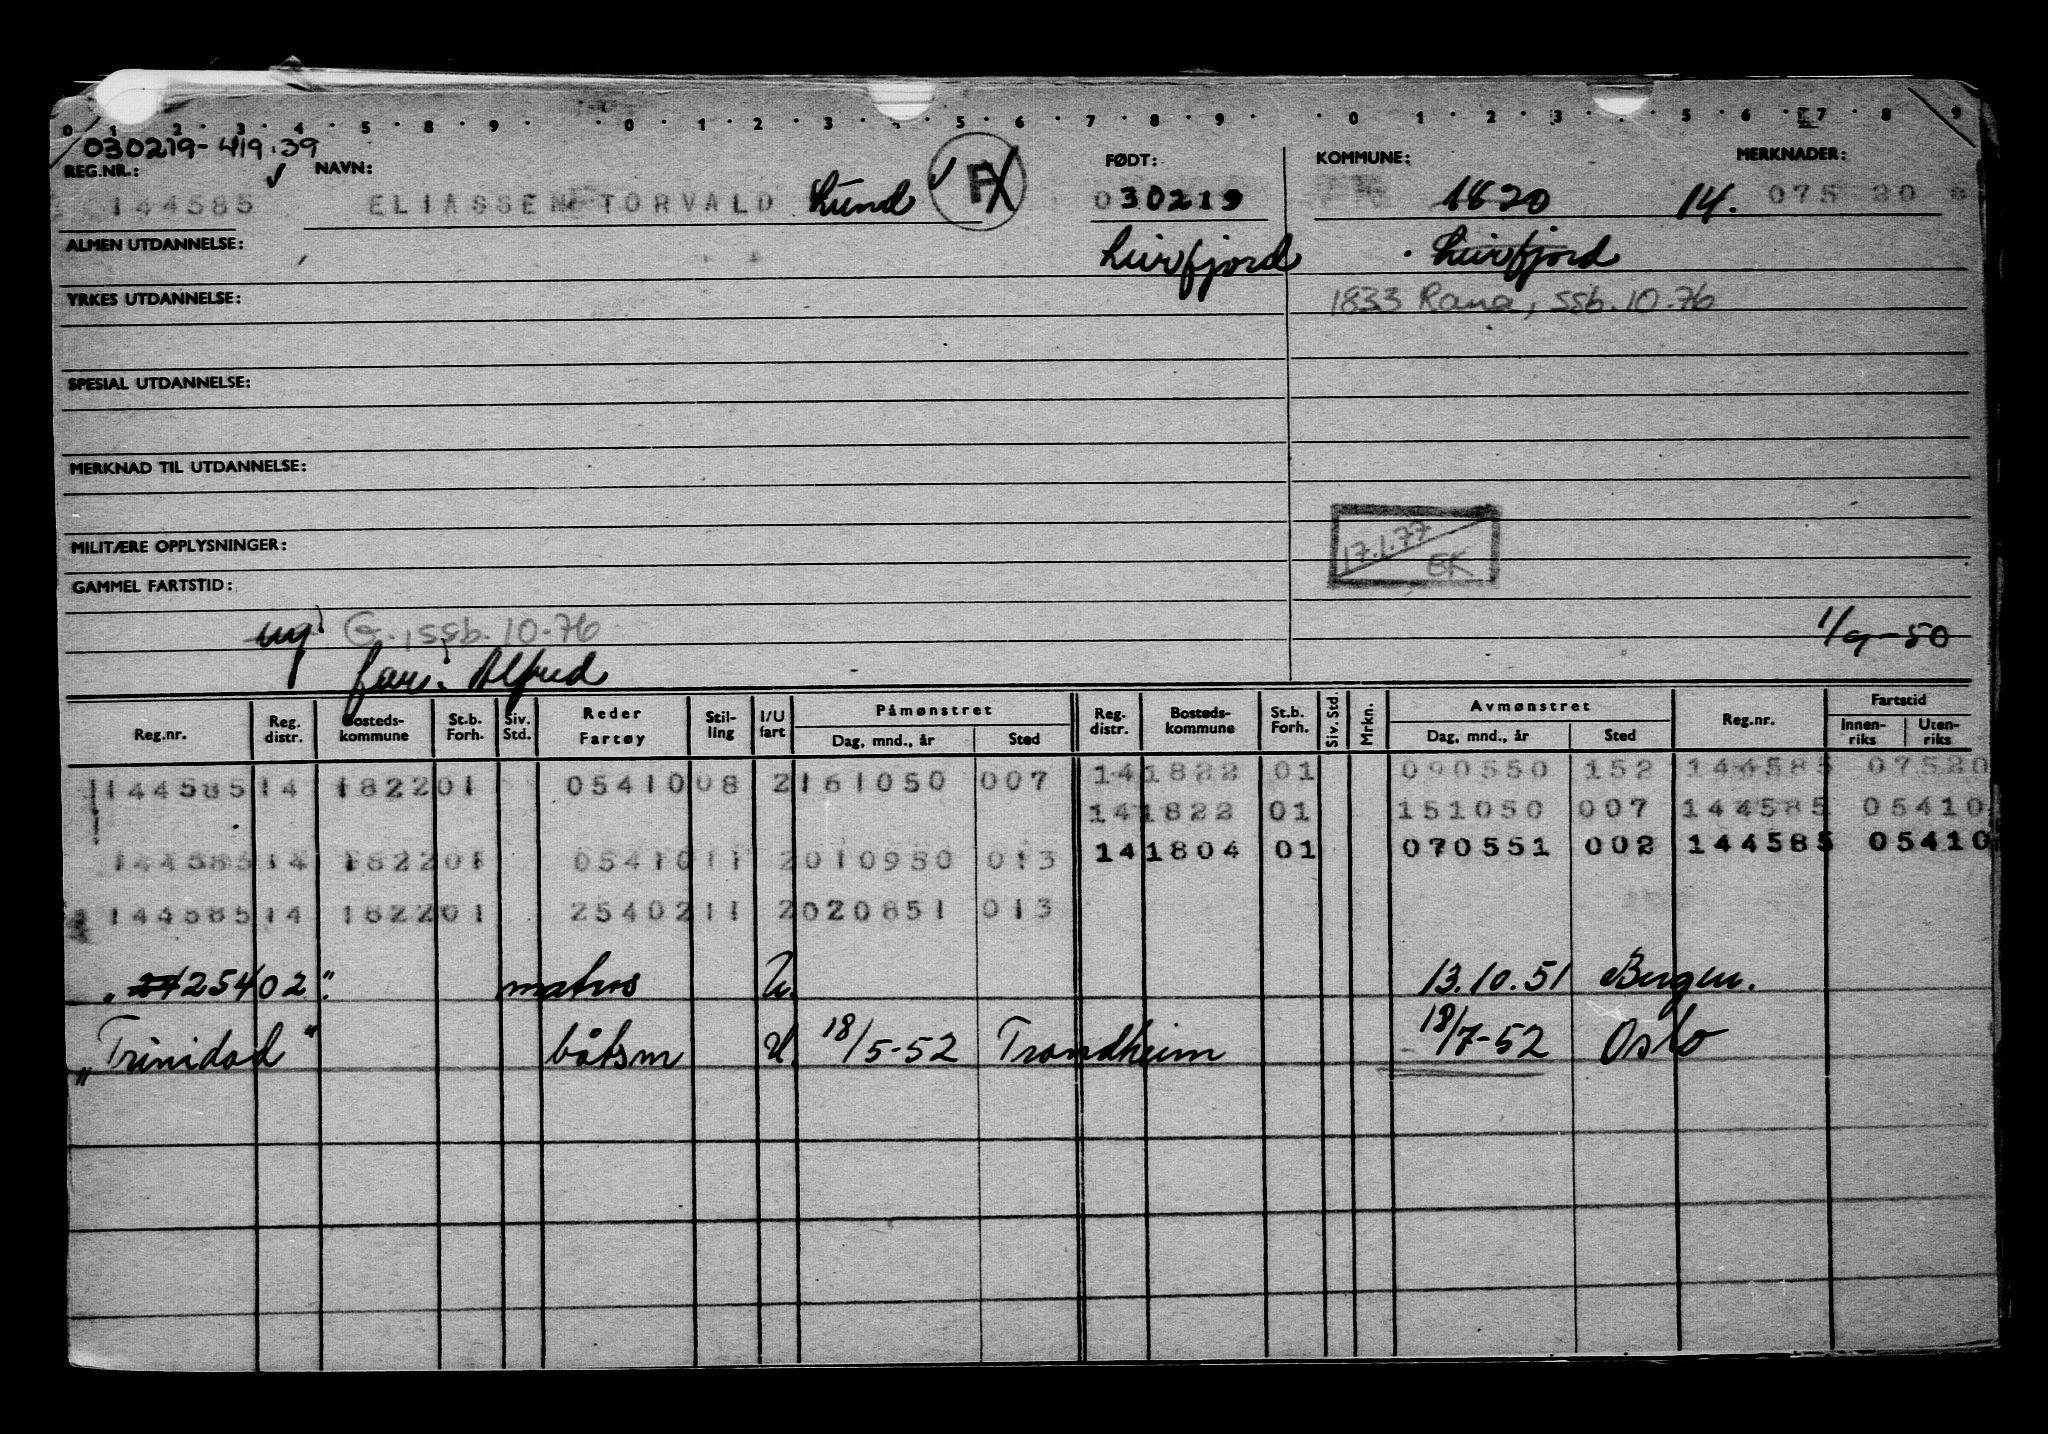 0 1 2 3 4 5 8 9 0 1 2 3 4 5 6 7 8 9 0 1 2 3 5 6 7 8 9
030219-419.39
REG.NR.: NAVN: FØDT: KOMMUNE: MERKNADER:
144585 ELIASSEN TORVALD Lund FX 030219 1820 14. 075 20
ALMEN UTDANNELSE: Leirfjord Leirfjord
YRKES UTDANNELSE: 1833 Rana, ssb.10.76
SPESIAL UTDANNELSE:
MERKNAD TIL UTDANNELSE:
MILITÆRE OPPLYSNINGER: 17.1.77 EK
GAMMEL FARTSTID:
ug G., ssb.10-76 1/9-50
far: Alfred
Reg.nr. Reg. distr. Bosteds-kommune St.b. Forh. Siv. Std. Reder Fartøy Stil-ling I/U fart Påmønstret Dag, mnd., år Sted Reg. distr. Bosteds-kommune St.b. Forh. Siv. Std. Mrkn. Avmønstret Dag, mnd., år Sted Reg.nr. Fartstid Innen-riks Uten-riks
144585 14 1822 01 05410 08 2 161050 007 14 1822 01 090550 152 144585 07520
14 1822 01 151050 007 144585 05410
144585 14 1822 01 05410 11 2 010950 013 14 1804 01 070551 002 144585 05410
144585 14 1822 01 25402 11 2 020851 013
" 25402" matros U. 13.10.51 Bergen.
"Trinidad" båtsm U. 18/5-52 Trondheim 18/7-52 Oslo